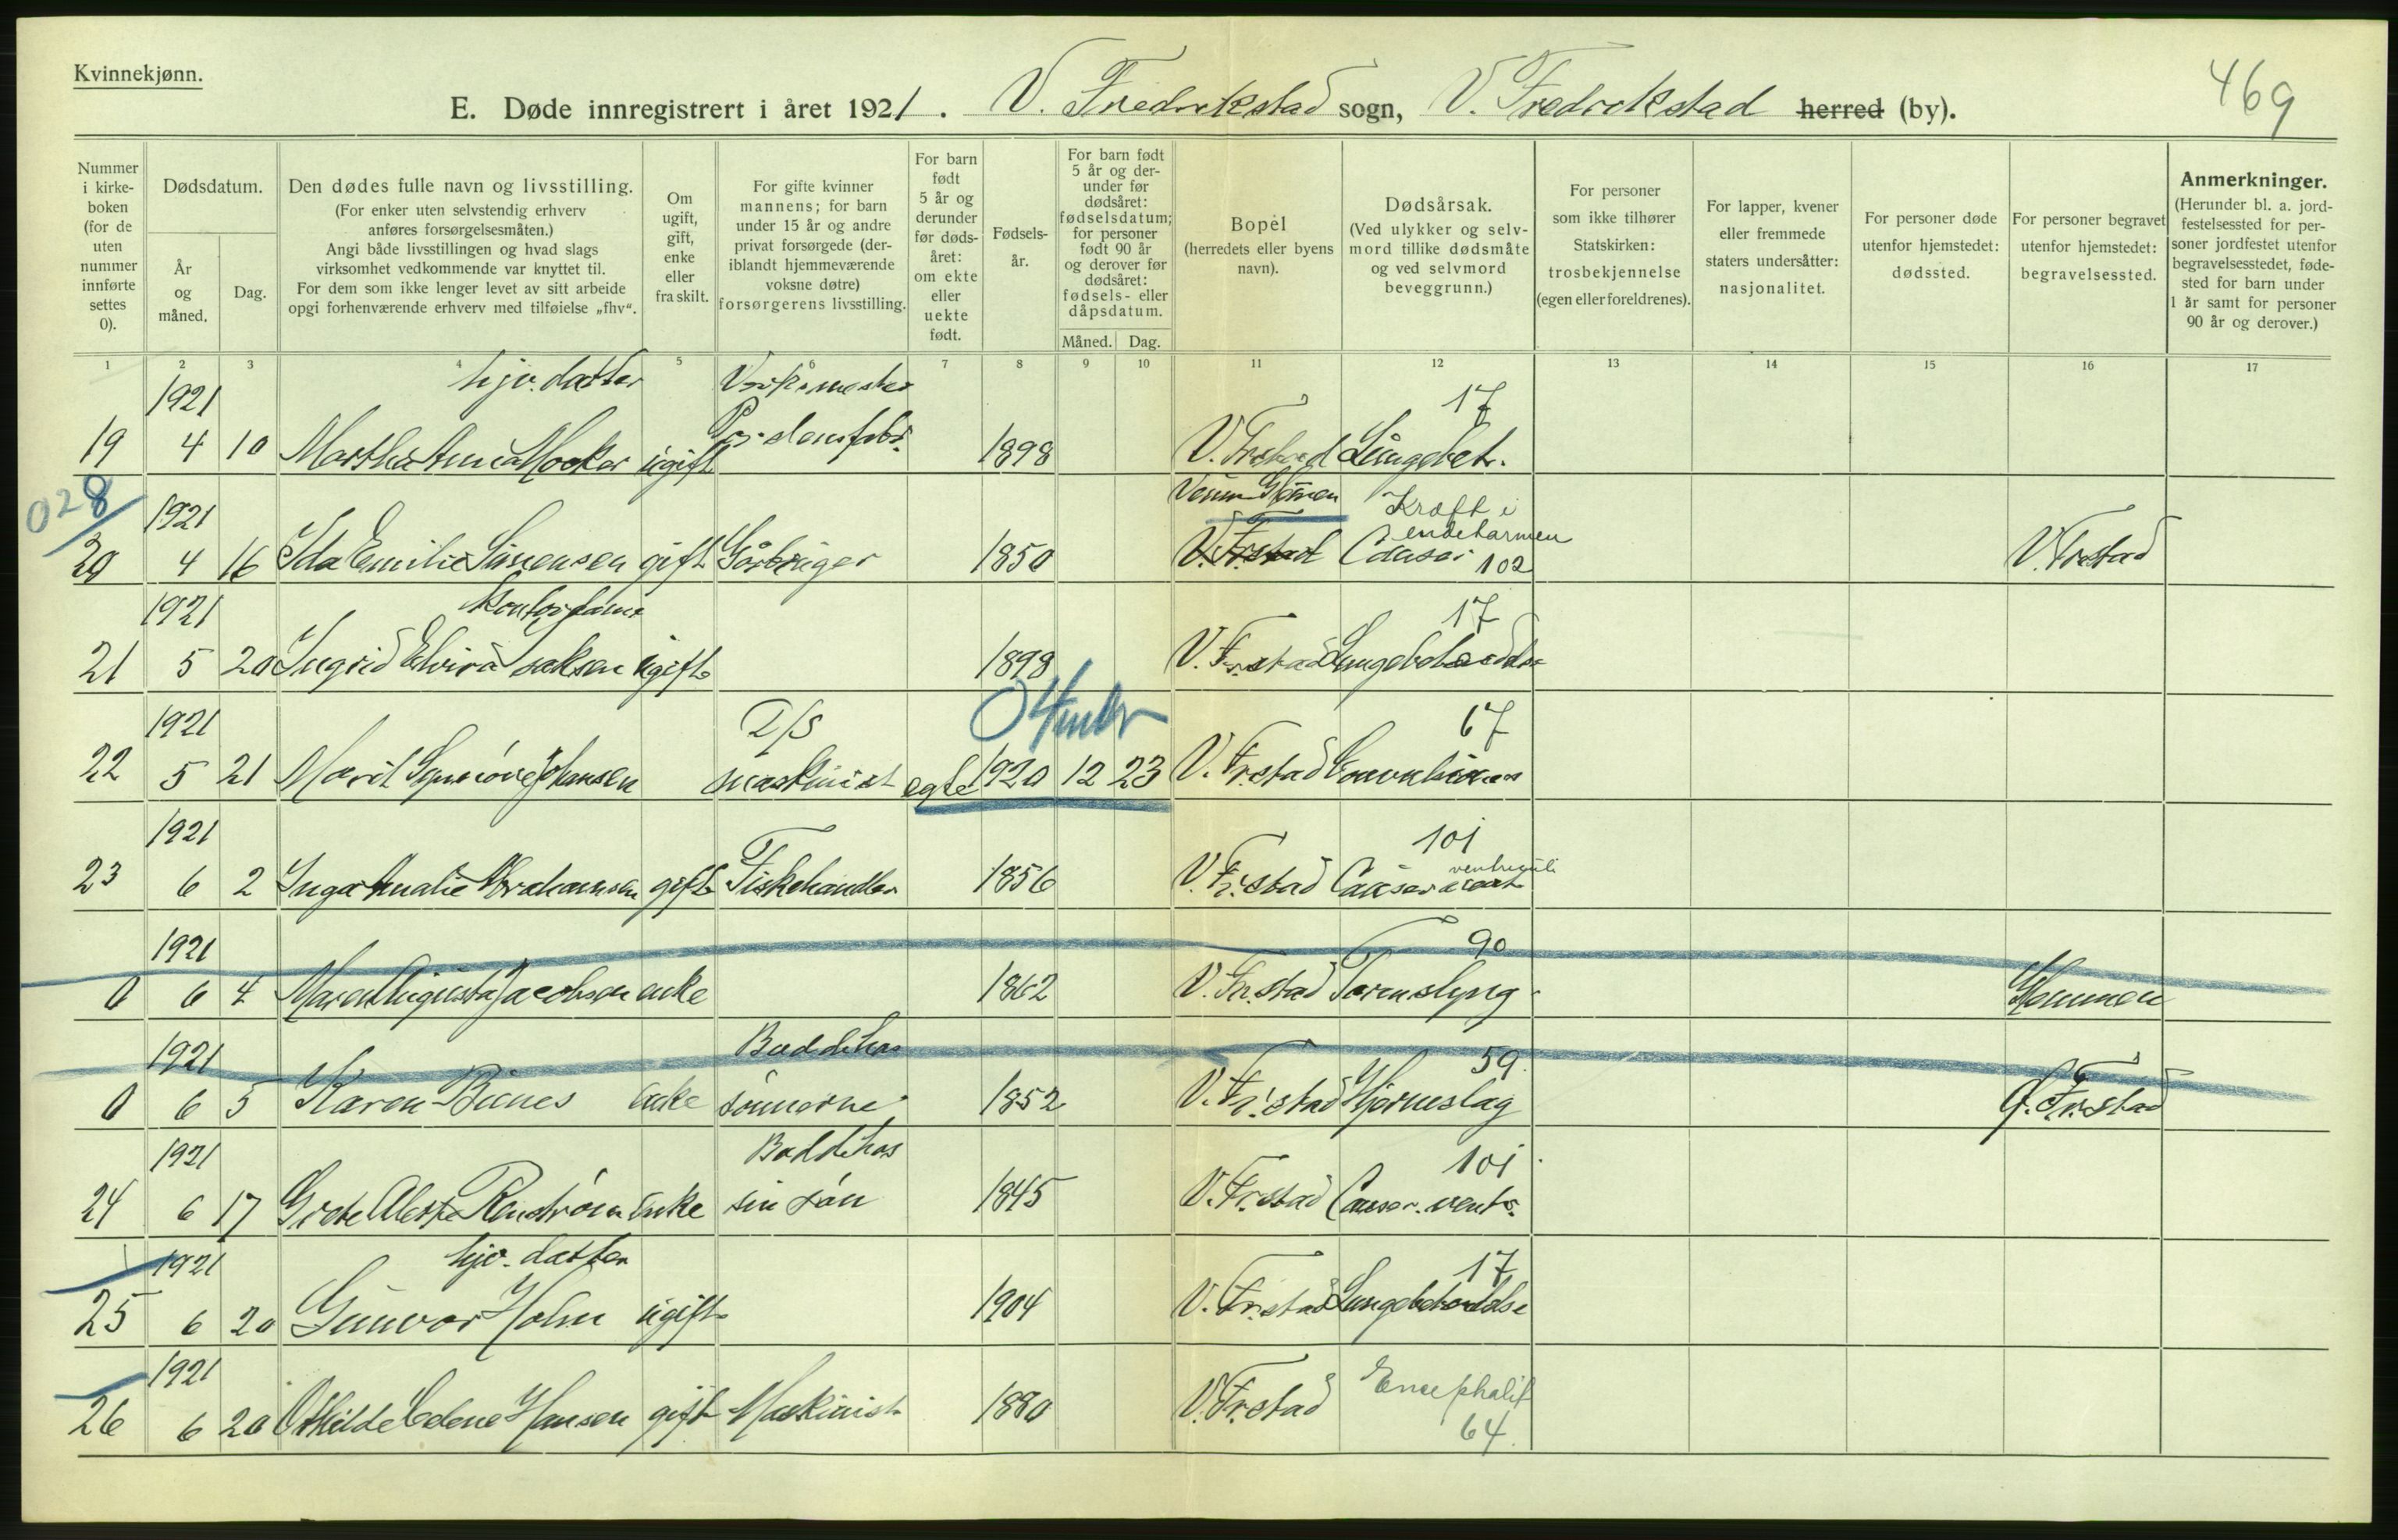 Kvinnekjønn.
469
E. Døde innregistrert i året 1921. V. Fredrikstad sogn, V. Fredrikstad herred (by).
Nummer i kirkeboken (for de uten nummer innførte settes 0).
Dødsdatum.
År og måned.
Dag.
Den dødes fulle navn og livsstilling.
(For enker uten selvstendig erhverv anføres forsørgelsesmåten.)
Angi både livsstillingen og hvad slags virksomhet vedkommende var knyttet til.
For dem som ikke lenger levet av sitt arbeide opgi forhenværende erhverv med tilføielse „fhv“.
Om ugift, gift, enke eller fraskilt.
For gifte kvinner mannens; for barn under 15 år og andre privat forsørgede (deriblandt hjemmeværende voksne døtre) forsørgerens livsstilling.
For barn født 5 år og derunder før dødsåret: om ekte eller uekte født.
Fødselsår.
For barn født 5 år og derunder før dødsåret: fødselsdatum; for personer født 90 år og derover før dødsåret: fødsels- eller dåpsdatum.
Måned. Dag.
Bopel (herredets eller byens navn).
Dødsårsak.
(Ved ulykker og selvmord tillike dødsmåte og ved selvmord beveggrunn.)
For personer som ikke tilhører Statskirken: trosbekjennelse (egen eller foreldrenes).
For lapper, kvener eller fremmede staters undersåtter: nasjonalitet.
For personer døde utenfor hjemstedet: dødssted.
For personer begravet utenfor hjemstedet: begravelsessted.
Anmerkninger.
(Herunder bl. a. jordfestelsessted for personer jordfestet utenfor begravelsesstedet, fødested for barn under 1 år samt for personer 90 år og derover.)
1 2 3 4 5 6 7 8 9 10 11 12 13 14 15 16 17
1921 hjv. datter Verksmester 17
19 4 10 Martha Anna ugift 1898 V. Frstad Lungebet.
028 1921 Glemmen Kræft i endetarmen
20 4 16 Ida Emilie Simensen gift Gårbruger 1850 V. Frstad Cancer 102 V. Frstad
1921 Kontordame 17
21 5 20 Ingrid Elvira Isaksen ugift 1898 V. Frstad Lungebetændelse
1921 D/S 67
22 5 21 Marit Synnöve Johansen maskinist egte 1920 12 23 V. Frstad
1921 101
23 6 2 Inga Amalie Abrahamsen gift Fiskehandler 1856 V. Fr.stad Cancer ventriculi
1921 90
0 6 4 Maren Augusta Jacobsen enke 1862 V. Fr.stad Tarmslyng Glemmen
1921 Bodde hos 59
0 6 5 Karen Bienes enke sönnerne 1852 V. Fr.stad Hjerneslag G. Fr.stad
1921 Bodde hos 101
24 6 17 Grete enke sin sön 1845 V. Fr.stad Cancer. ventr.
1921 hjv. datter 17
25 6 20 Gunvor Holm ugift 1904 V. Fr.stad Lungebetændelse
1921 Encephalit
26 6 20 Othilde Hansen gift Maskinist 1880 V. Fr.stad 64.